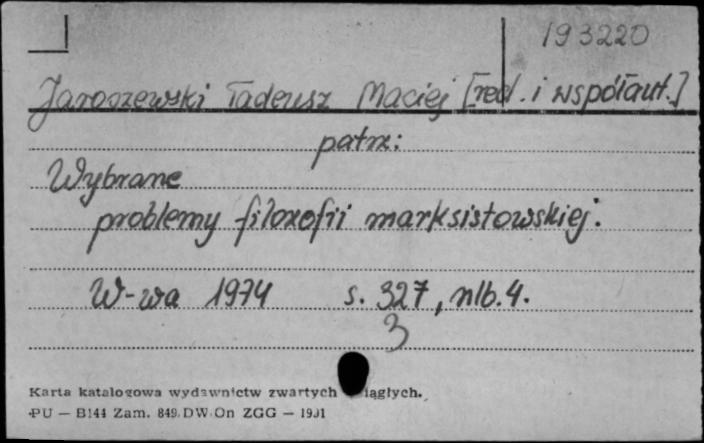 193220
Jaroszewski Tadeusz Maciej [red. i współaut.]
patrz:
Wybrane
problemy filozofii marksistowskiej.
W-wa 1974 s. 327, nlb. 4.
3
Karta katalogowa wydawnictw zwartych iągłych.
PU — B144 Zam. 849. DW. On ZGG —